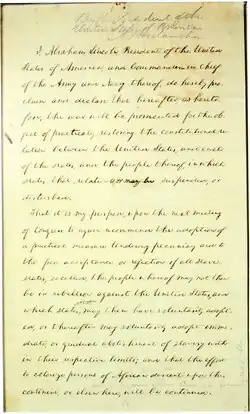 By the President of the
United States of America
A Proclamation
I, Abraham Lincoln, President of the United
States of America, and Commander-in-Chief
of the Army and Navy thereof, do hereby pro-
claim and declare that hereafter, as hereto-
fore, the war will be prosecuted for the ob-
ject of practically restoring the constitutional re-
lation between the United States, and each
of the states, and the people thereof, in which
states that relation is, or may be suspended, or
disturbed.
That it is my purpose, upon the next meeting
of Congress to again recommend the adoption of
a practical measure tendering pecuniary aid to
the free acceptance or rejection of all slave-
states, so called, the people whereof may not then
be in rebellion against the United States, and
which states, may then have voluntarily adopt-
ed, or thereafter may voluntarily adopt, imme-
diate, or gradual abolishment of slavery with-
in their respective limits; and that the effort
to colonize persons of African descent upon this
continent, or elsewhere, will be continued.